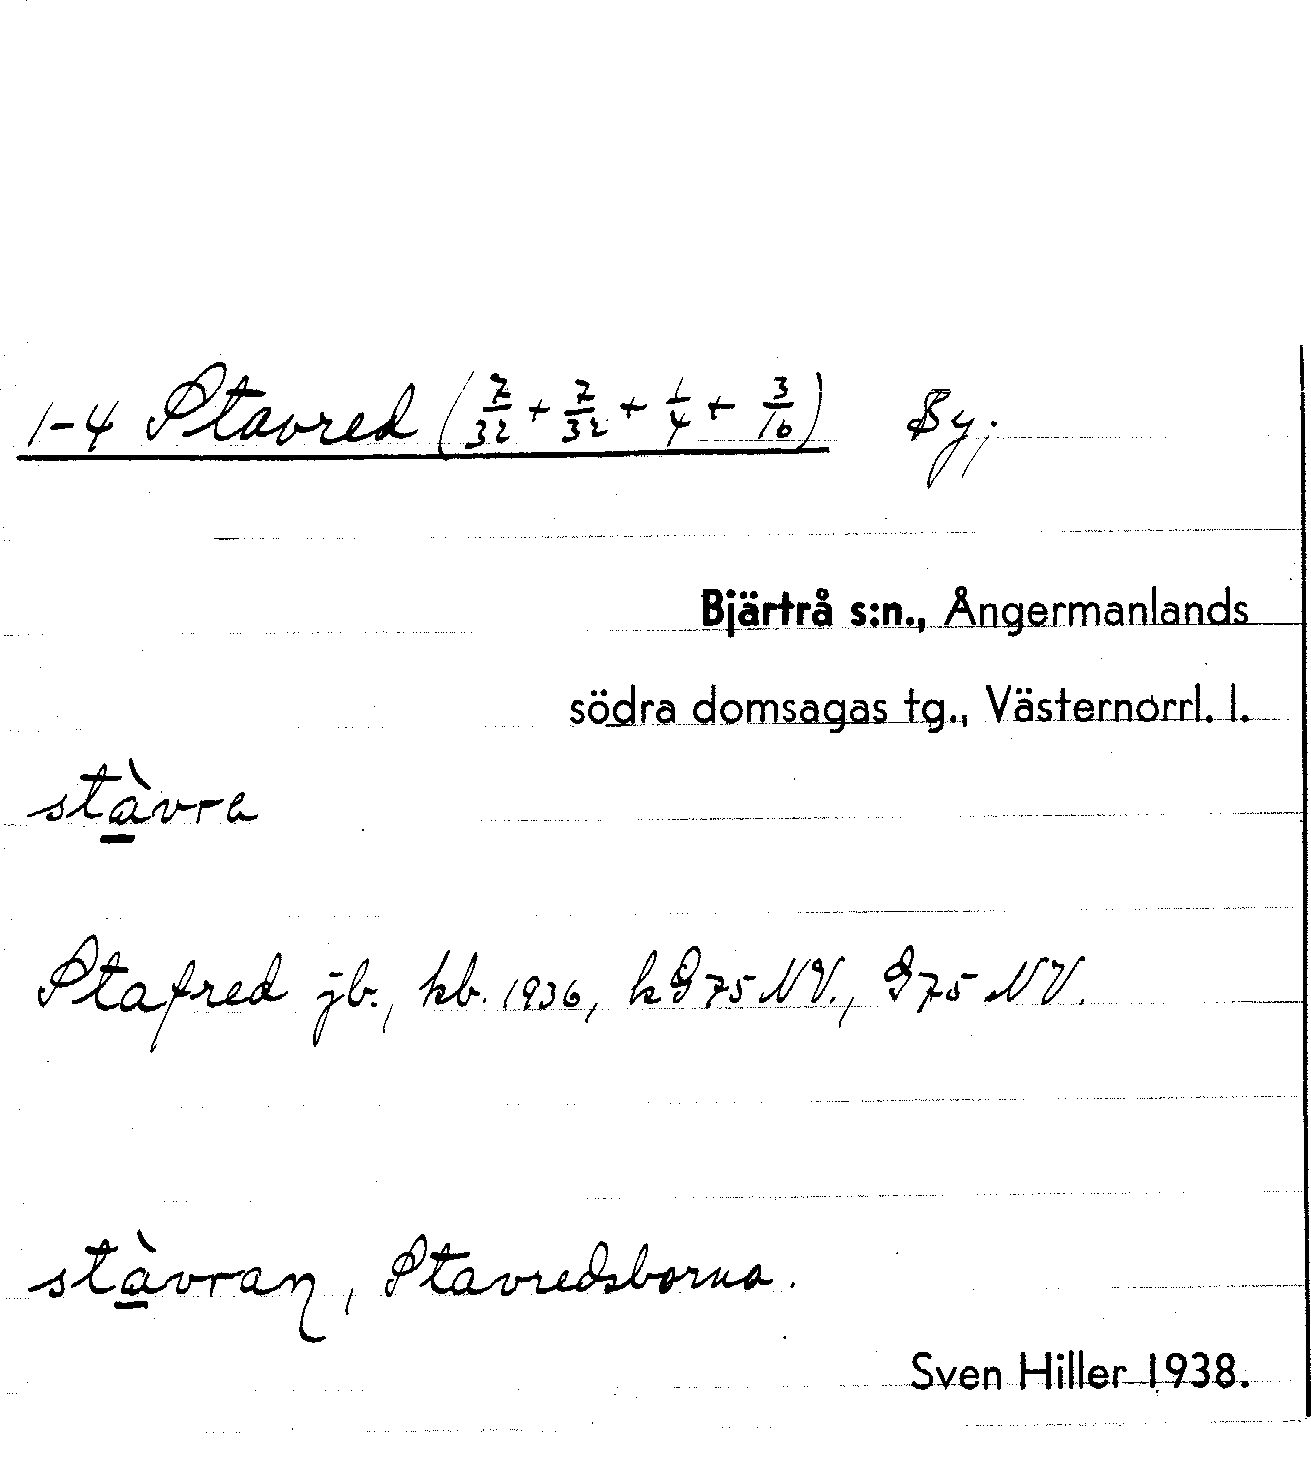 1-4 Stavred (7/32 + 7/32 + 1/4 + 3/16) By;
Bjärtrå s:n., Ångermanlands
södra domsagas tg., Västernorrl. l.
stàvra
Stafred jb., kb. 1936, kG 75 NV., G 75 NV.
stàvraŋ, Stavredsborna.
Sven Hiller 1938.